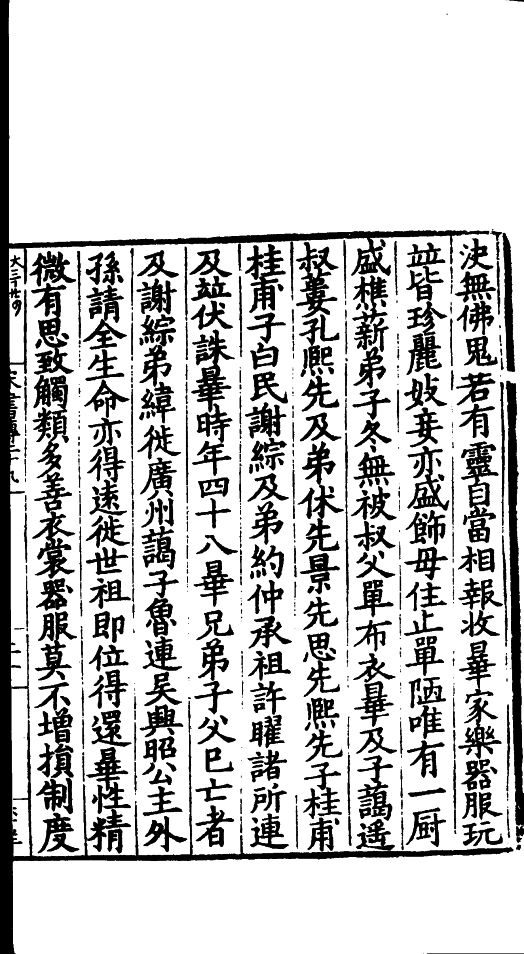 決無佛鬼若有靈自當相報收曅家樂器服玩
竝皆珍麗妓妾亦盛飾母住止單陋唯有一厨
盛樵薪弟子冬無被叔父單布衣曅及子藹遥
叔蔞孔熈先及弟休先景先思先熈先子桂甫
桂甫子白民謝綜及弟約仲承祖許曜諸所連
及竝伏誅曅時年四十八曅兄弟子父巳亡者
及謝綜弟緯徙廣州藹子魯連吴興昭公主外
孫請全生命亦得逺徙世祖即位得還曅性精
微有思致觸類多善衣裳器服莫不増損制度